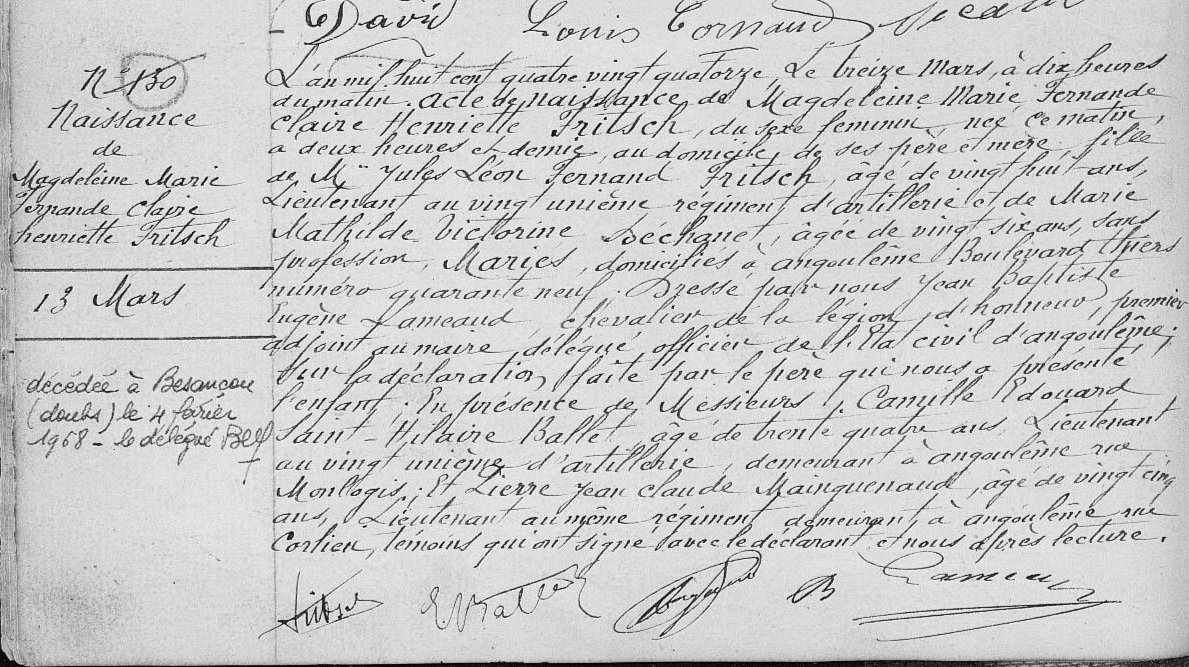 David Louis Cornaud
N° 130
Naissance
de
Magdeleine Marie
Fernande Claire
henriette Fritsch
13 Mars
décédée à Besançon
(doubs) le 4 février
1968 - le délégué
L'an mil huit cent quatre vingt quatorze, Le treize Mars, à dix heures
du matin. acte de naissance de Magdeleine Marie Fernande
Claire Henriette Fritsch, du sexe feminin, née ce matin,
a deux heures et demie, au domicile de ses père et mère, fille
de Mr Jules Léon Fernand Fritsch, âgé de vingt huit ans,
Lieutenant au vingt unième régiment d'artillerie et de Marie
Mathilde Victorine Béchanet, âgée de vingt six ans, sans
profession, Mariés, domiciliés à angoulême Boulevard Thiers
numéro quarante neuf. Dressé par nous Jean Baptiste
Eugène Lameaud, chevalier de la légion d'honneur, premier
adjoint au maire, délégué officier de l'Etat civil d'angoulême;
Sur la déclaration faite par le père qui nous a présenté
l'enfant. En présence de Messieurs, Camille Edouard
Saint-Hilaire Ballet, âgé de trente quatre ans, Lieutenant
au vingt unième d'artillerie, demeurant à angoulême rue
Monlogis; Et Pierre Jean Claude Mainguenaud, âgé de vingt cinq
ans, Lieutenant au même régiment demeurant, à angoulême rue
Corlieu, témoins qui ont signé avec le déclarant et nous après lecture.
Fritsch EBallet B Lameau